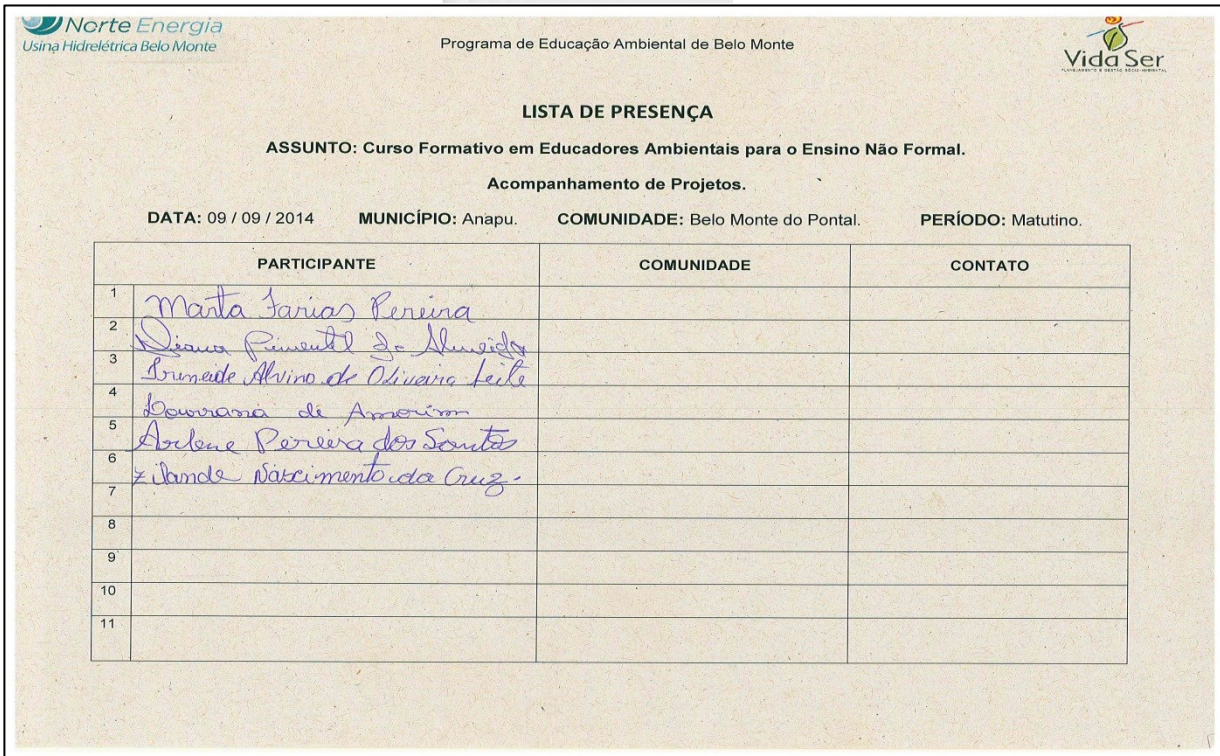 Norte Energia
Usina Hidrelétrica Belo Monte
Programa de Educação Ambiental de Belo Monte
Vida Ser
PLANEJAMENTO E GESTÃO SÓCIO-AMBIENTAL
LISTA DE PRESENÇA
ASSUNTO: Curso Formativo em Educadores Ambientais para o Ensino Não Formal.
Acompanhamento de Projetos.
DATA: 09 / 09 / 2014 MUNICÍPIO: Anapu. COMUNIDADE: Belo Monte do Pontal. PERÍODO: Matutino.
PARTICIPANTE COMUNIDADE CONTATO
1 Marta Farias Pereira
2 Pimentel de Almeida
3 Alvino de Oliveira Leite
4 de Amorim
5 Arlene Pereira dos Santos
6 Nascimento da Cruz.
7
8
9
10
11